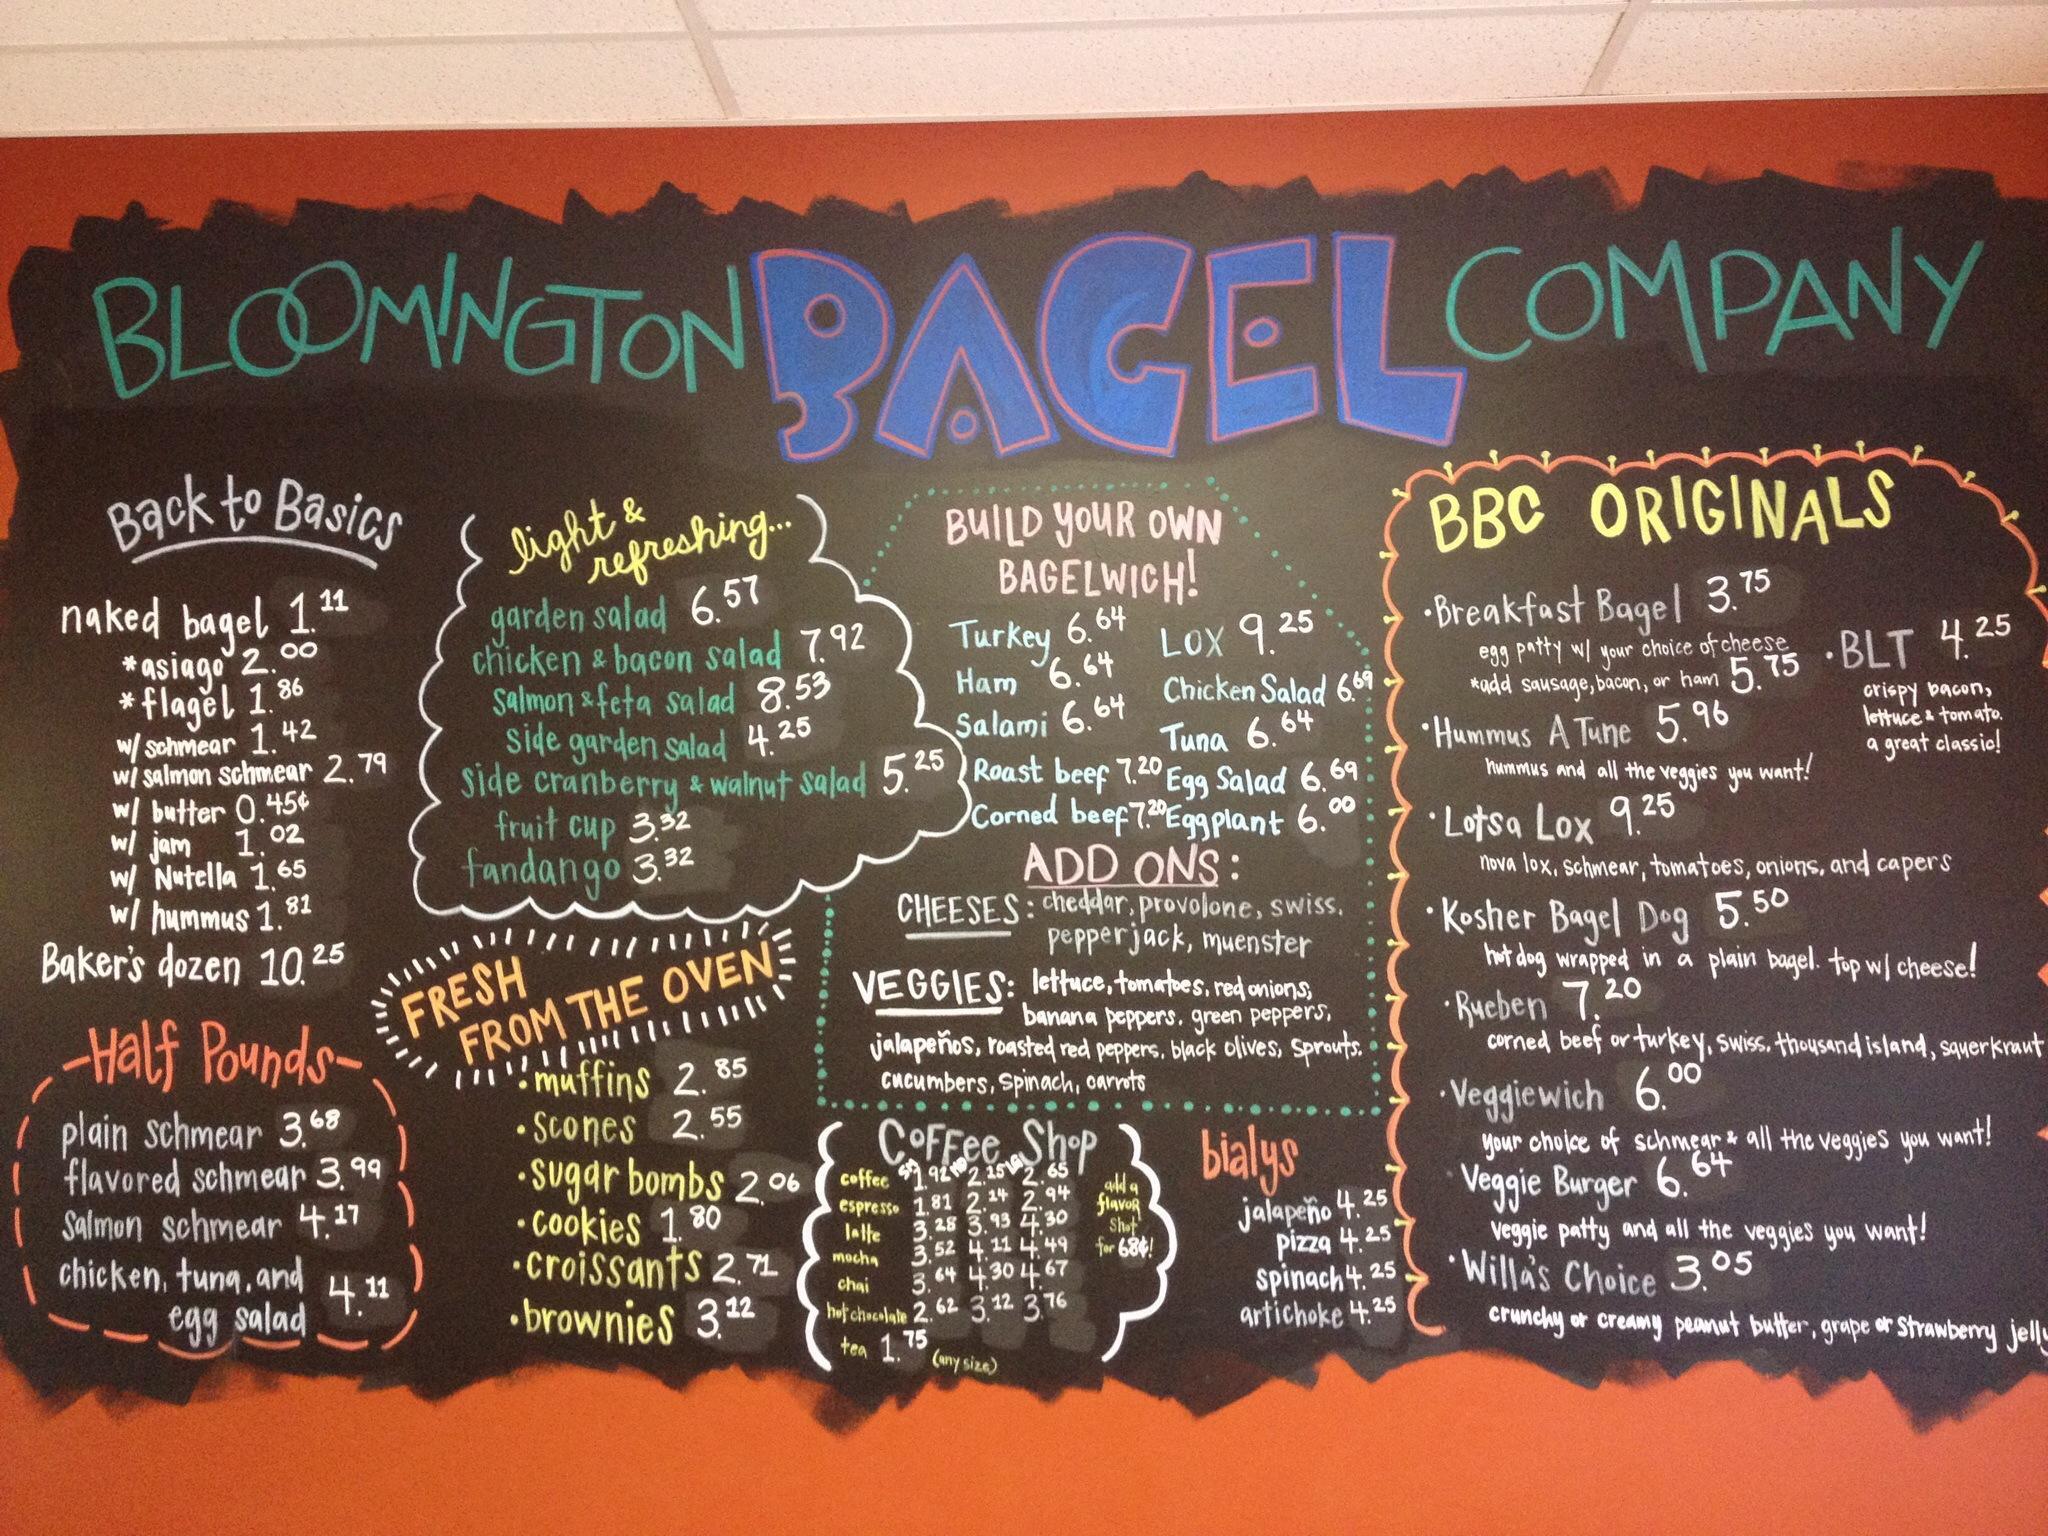 BLOOMINGTON BAGEL COMPANY
Back to Basics
naked bagel 1.11
*asiago 2.00
*flagel 1.86
w/ schmear 1.42
w/ salmon schmear 2.79
w/ butter 0.45¢
w/ jam 1.02
w/ Nutella 1.65
w/ hummus 1.81
Baker's dozen 10.25
-Half Pounds-
plain schmear 3.68
flavored schmear 3.99
salmon schmear 4.17
chicken, tuna, and
egg salad 4.11
light &
refreshing...
garden salad 6.57
chicken & bacon salad 7.92
salmon & feta salad 8.53
side garden salad 4.25
side cranberry & walnut salad 5.25
fruit cup 3.32
fandango 3.32
FRESH
FROM THE OVEN
•muffins 2.85
•scones 2.55
•sugar bombs 2.06
•cookies 1.80
•croissants 2.71
•brownies 3.12
BUILD YOUR OWN
BAGELWICH!
Turkey 6.64
Ham 6.64
Salami 6.64
Roast beef 7.20
Corned beef 7.20
LOX 9.25
Chicken Salad 6.69
Tuna 6.64
Egg Salad 6.69
Eggplant 6.00
ADD ONS:
CHEESES: cheddar, provolone, swiss,
pepperjack, muenster
VEGGIES: lettuce, tomatoes, red onions,
banana peppers, green peppers,
jalapeños, roasted red peppers, black olives, sprouts,
cucumbers, spinach, carrots
Coffee Shop
coffee 1.92 2.15 2.65
espresso 1.81 2.24 2.94
latte 3.28 3.93 4.30
mocha 3.52 4.11 4.49
chai 3.64 4.30 4.67
hot chocolate 2.62 3.12 3.76
tea 1.75 (any size)
add a
flavor
shot
for 68¢!
bialys
jalapeño 4.25
pizza 4.25
spinach 4.25
artichoke 4.25
BBC ORIGINALS
•Breakfast Bagel 3.75
egg patty w/ your choice of cheese
*add sausage, bacon, or ham 5.75
•BLT 4.25
crispy bacon,
lettuce & tomato.
a great classic!
•Hummus A Tune 5.96
hummus and all the veggies you want!
•Lotsa Lox 9.25
nova lox, schmear, tomatoes, onions, and capers
•Kosher Bagel Dog 5.50
hot dog wrapped in a plain bagel. top w/ cheese!
•Rueben 7.20
corned beef or turkey, swiss, thousand island, sauerkraut
•Veggiewich 6.00
your choice of schmear & all the veggies you want!
•Veggie Burger 6.64
veggie patty and all the veggies you want!
•Willa's Choice 3.05
crunchy or creamy peanut butter, grape or strawberry jelly